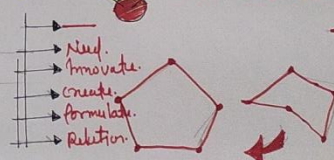 Need.
Innovate.
Create.
formulate.
Relation.